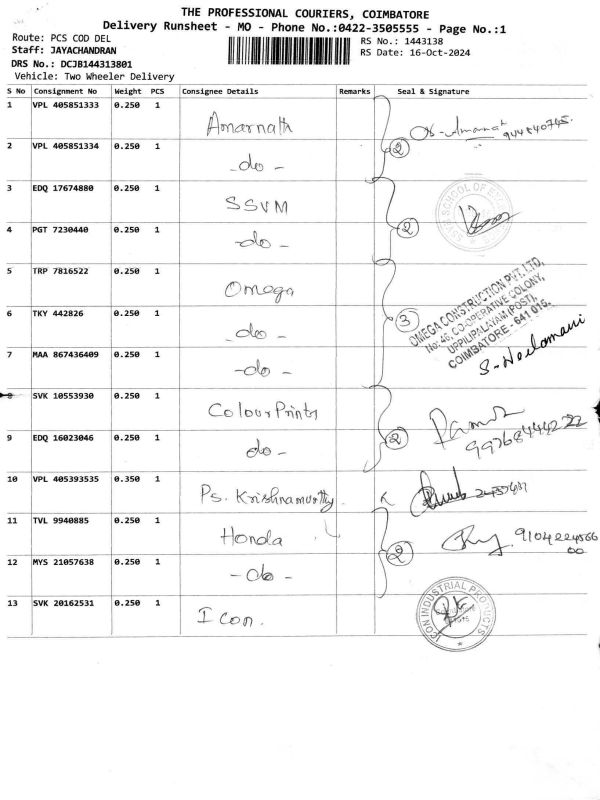 THE PROFESSIONAL COURIERS, COIMBATORE
Delivery Runsheet - MO - Phone No.:0422-3505555 - Page No.:1
Route: PCS COD DEL
RS No.: 1443138
Staff: JAYACHANDRAN
RS Date: 16-Oct-2024
DRS No.: DCJB144313801
Vehicle: Two Wheeler Delivery
S No Consignment No Weight PCS Consignee Details Remarks Seal & Signature
1 VPL 405851333 0.250 1 Amarnath
2 VPL 405851334 0.250 1 -do- 2
3 EDQ 17674880 0.250 1 SSVM
SSVM SCHOOL OF
4 PGT 7230440 0.250 1 -do- 2
5 TRP 7816522 0.250 1 Omega
6 TKY 442826 0.250 1 -do- 3
OMEGA CONSTRUCTION PVT. LTD,
No: 46, CO-OPERATIVE COLONY,
UPPILIPALAYAM (POST),
COIMBATORE - 641 015.
7 MAA 867436409 0.250 1 -do- S-Neelamani
8 SVK 10553930 0.250 1 ColourPrints
9 EDQ 16023046 0.250 1 do- 2
10 VPL 405393535 0.350 1 Ps. Krishnamurthy
11 TVL 9940885 0.250 1 Honda
12 MYS 21057638 0.250 1 -do- 2
13 SVK 20162531 0.250 1 Icon.
ICON INDUSTRIAL PRODUCTS